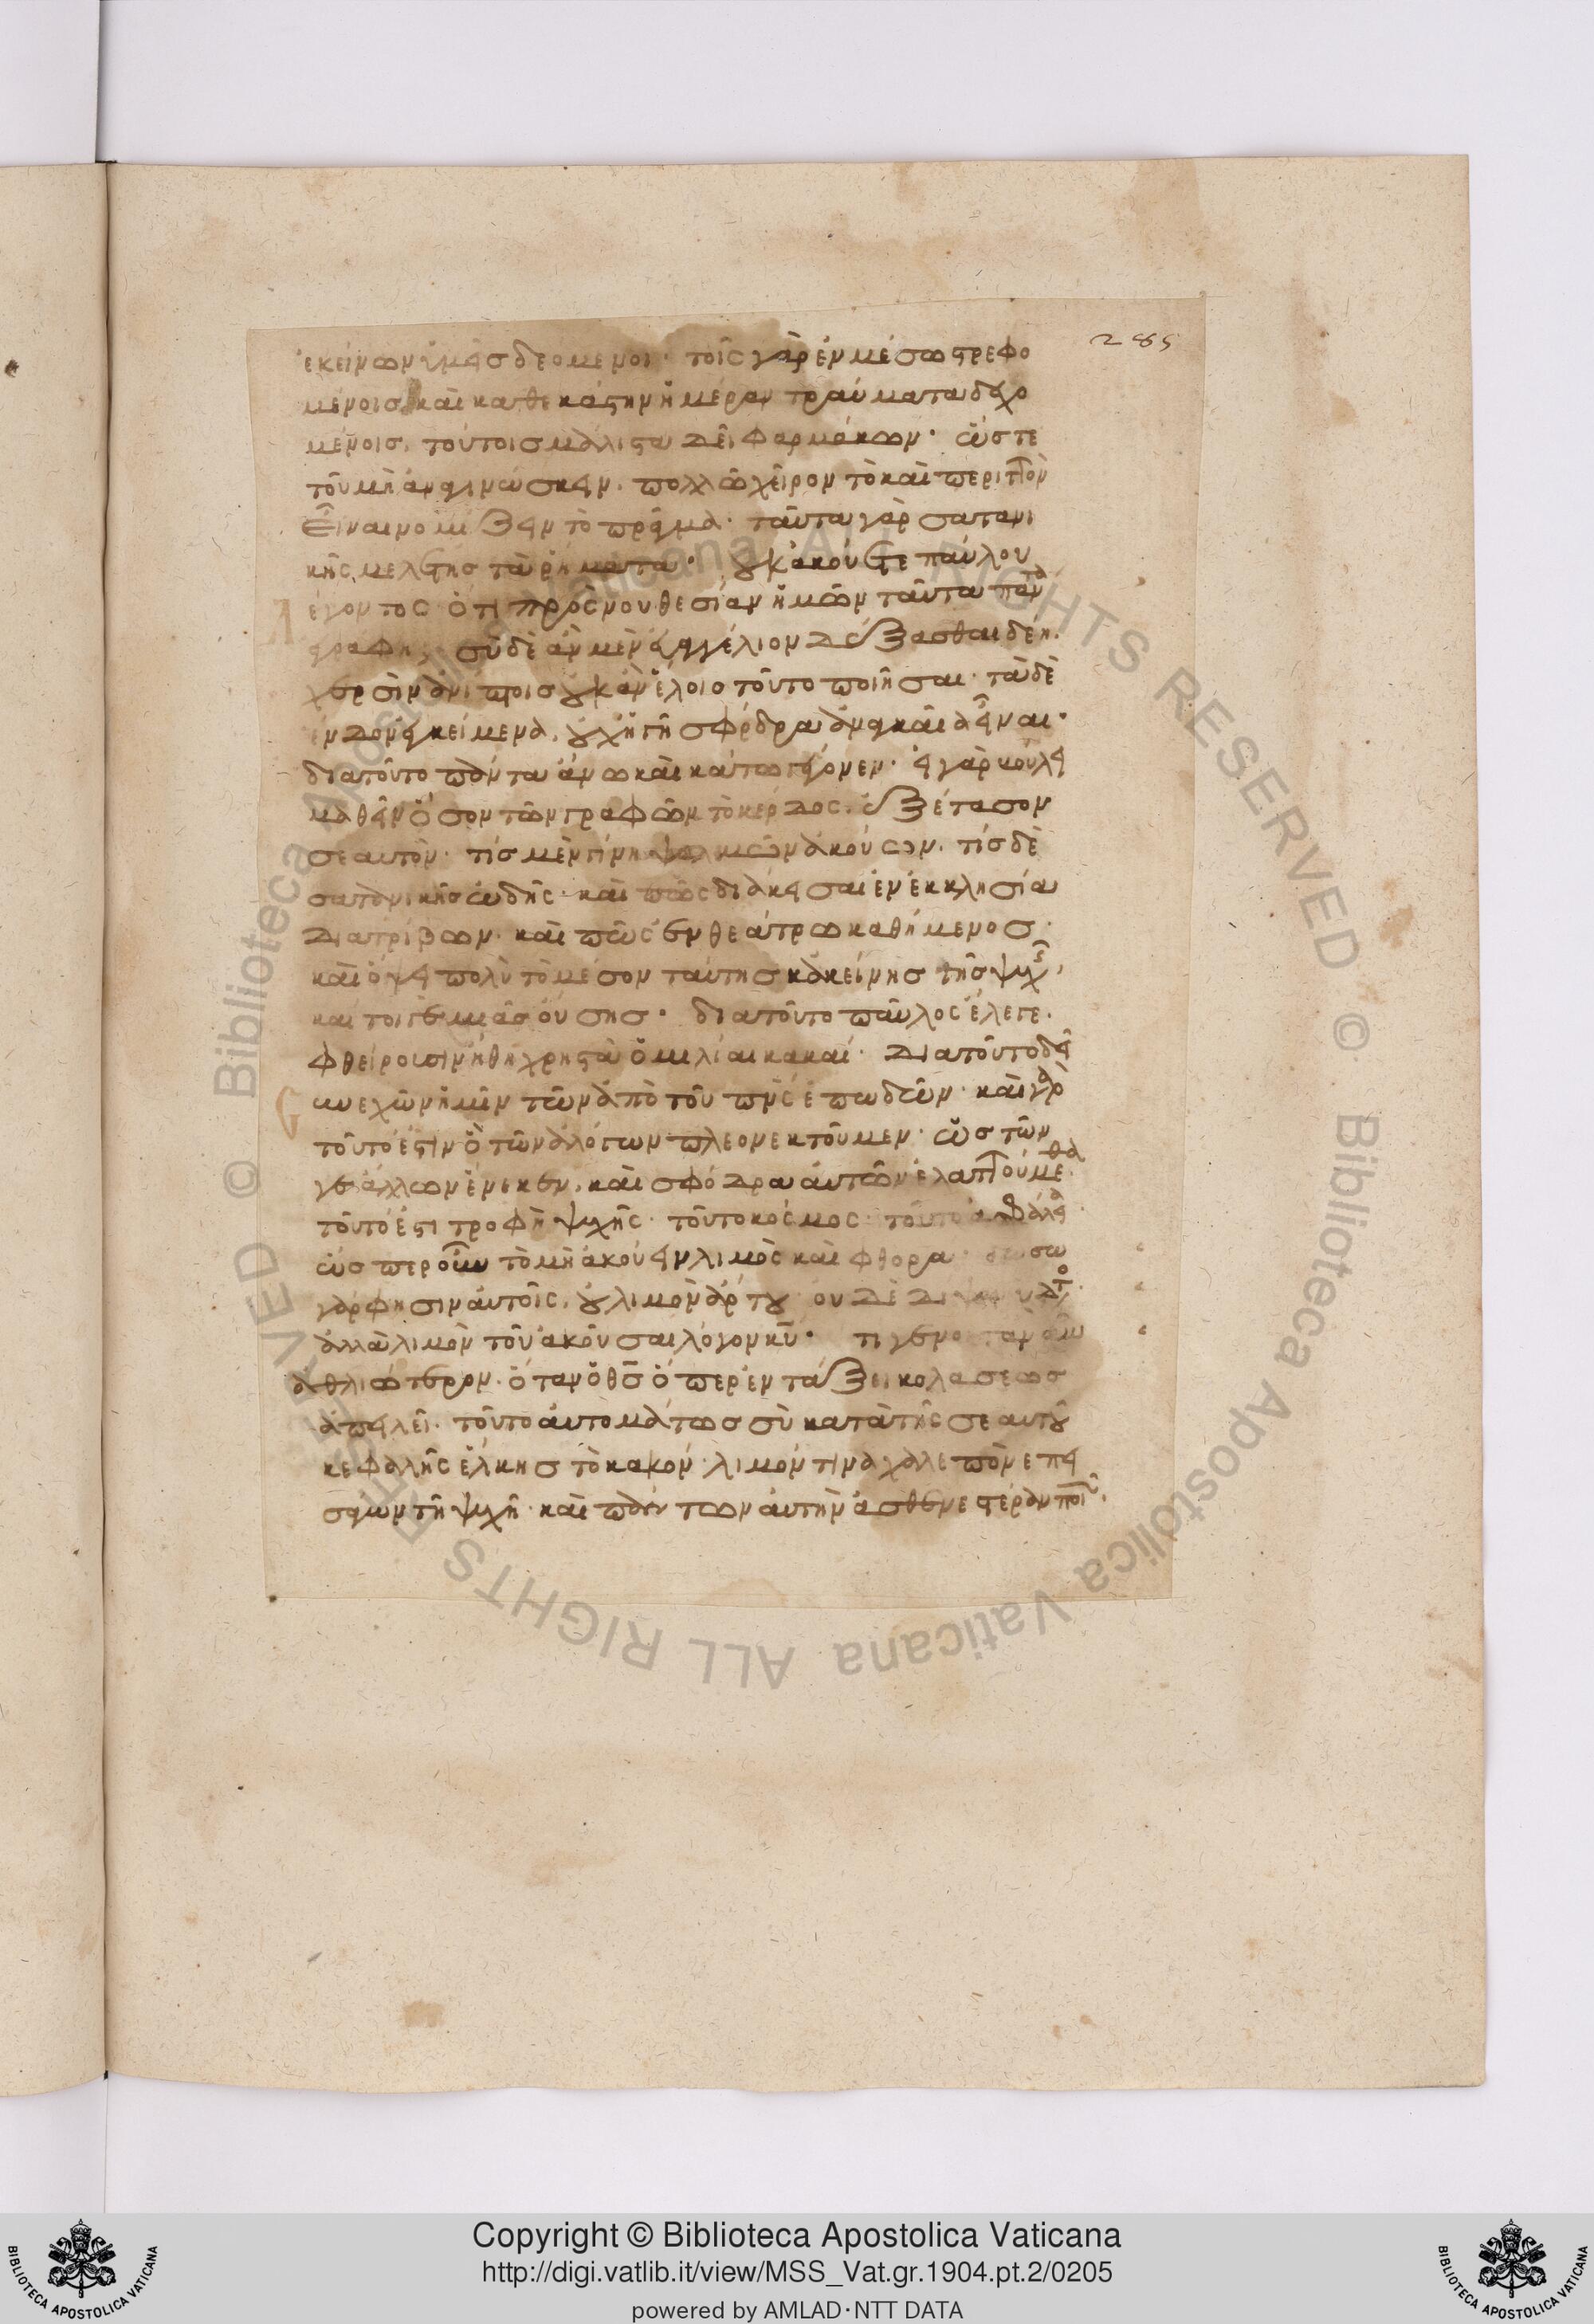 285
ἐκείνων ὑμεῖς δεόμενοι· τοῖς γὰρ ἐν μέσω στρεφο
μένοις καὶ καθεκάστην ἡμέραν τραύματα δεχο
μένοις, τούτοις μάλιστα δεῖ φαρμάκων· ὥστε
τοῦ μὴ ἀναγινώσκειν, πολλῶ χεῖρον τὸ καὶ περιττὸν
εἶναι νομίζειν τὸ πρᾶγμα· ταῦτα γὰρ σατανι
κῆς μελέτης τὰ ῥήματα· οὐκ ἀκούετε παύλου
λέγοντος ὅτι πρὸς νουθεσίαν ἡμῶν ταῦτα πάντα
γράφη; σὺ δὲ ἂν μὲν εὐαγγέλιον δέξασθαι δέη
χερσὶν ἀνίπτοις οὐκ ἂν ἕλοιο τοῦτο ποιῆσαι· τὰ δὲ
ἔνδον ἐγκείμενα, οὐχ ἡγῆ σφόδρα ἀναγκαῖα εἶναι·
διὰ τοῦτο πάντα ἄνω καὶ κάτω γέγονεν· εἰ γὰρ βούλει
μαθεῖν ὅσον τῶν γραφῶν τὸ κέρδος, ἐξέτασον
σεαυτὸν· τίς μὲν γίνη ψαλμῶν ἀκούων, τίς δὲ
σατανικῆς ὠδῆς· καὶ πῶς διάκεισαι ἐν ἐκκλησία
διατρίβων· καὶ πῶς ἐν θεάτρω καθήμενος·
καὶ ὄψει πολὺ τὸ μέσον ταύτης κἀκείνης τῆς ψυχῆς,
καίτοιγε μιᾶς οὔσης· διὰ τοῦτο παῦλος ἔλεγε·
φθείρουσιν ἤθη χρηστὰ ὁμιλίαι κακαί· διὰ τοῦτο δεῖ
συνεχῶν ἡμῖν τῶν ἀπὸ τοῦ πνς ἐπωδῶν· καὶ γὰρ
τοῦτό ἐστιν ὃ τῶν ἀλόγων πλεονεκτοῦμεν· ὡς τῶν
γε ἄλλων ἕνεκεν, καὶ σφόδρα αὐτῶν ἐλαττούμεθα·
τοῦτό ἐστι τροφὴ ψυχῆς· τοῦτο κόσμος· τοῦτο ἀσφάλεια
ὥσπερ οὖν τὸ μὴ ἀκούειν λιμὸς καὶ φθορα· δώσω
γάρ φησιν αὐτοῖς, οὐ λιμὸν ἄρτου οὐδὲ δίψαν ὕδατος·
ἀλλὰ λιμὸν τοῦ ἀκοῦσαι λόγον κυ· τί γένοιτ' ἂν οὖν
ἀθλιώτερον, ὅταν ὁ θς ὅπερ ἐν τάξει κολάσεως
ἀπειλεῖ· τοῦτο αὐτομάτως σὺ κατὰ τῆς σεαυτοῦ
κεφαλῆς ἕλκης τὸ κακὸν· λιμόν τινα χαλεπὸν ἐπει
σάγων τῆ ψυχῆ· καὶ πάντων αὐτὴν ἀσθενεστέραν ποιῶν,
Copyright © Biblioteca Apostolica Vaticana
http://digi.vatlib.it/view/MSS_Vat.gr.1904.pt.2/0205
powered by AMLAD·NTT DATA